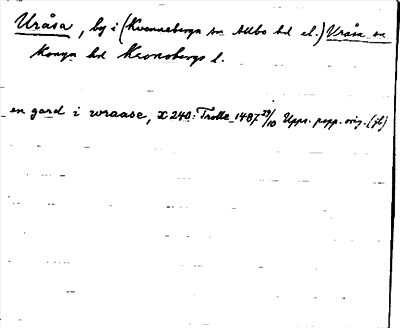 Uråsa, by i (Kvenneberga sn Allbo hd el.) Uråsa sn
Konga hd Kronobergs l.
en gard i wraase, X 240: Trolle 1487 29/10 Upps. papp. orig. (fl)